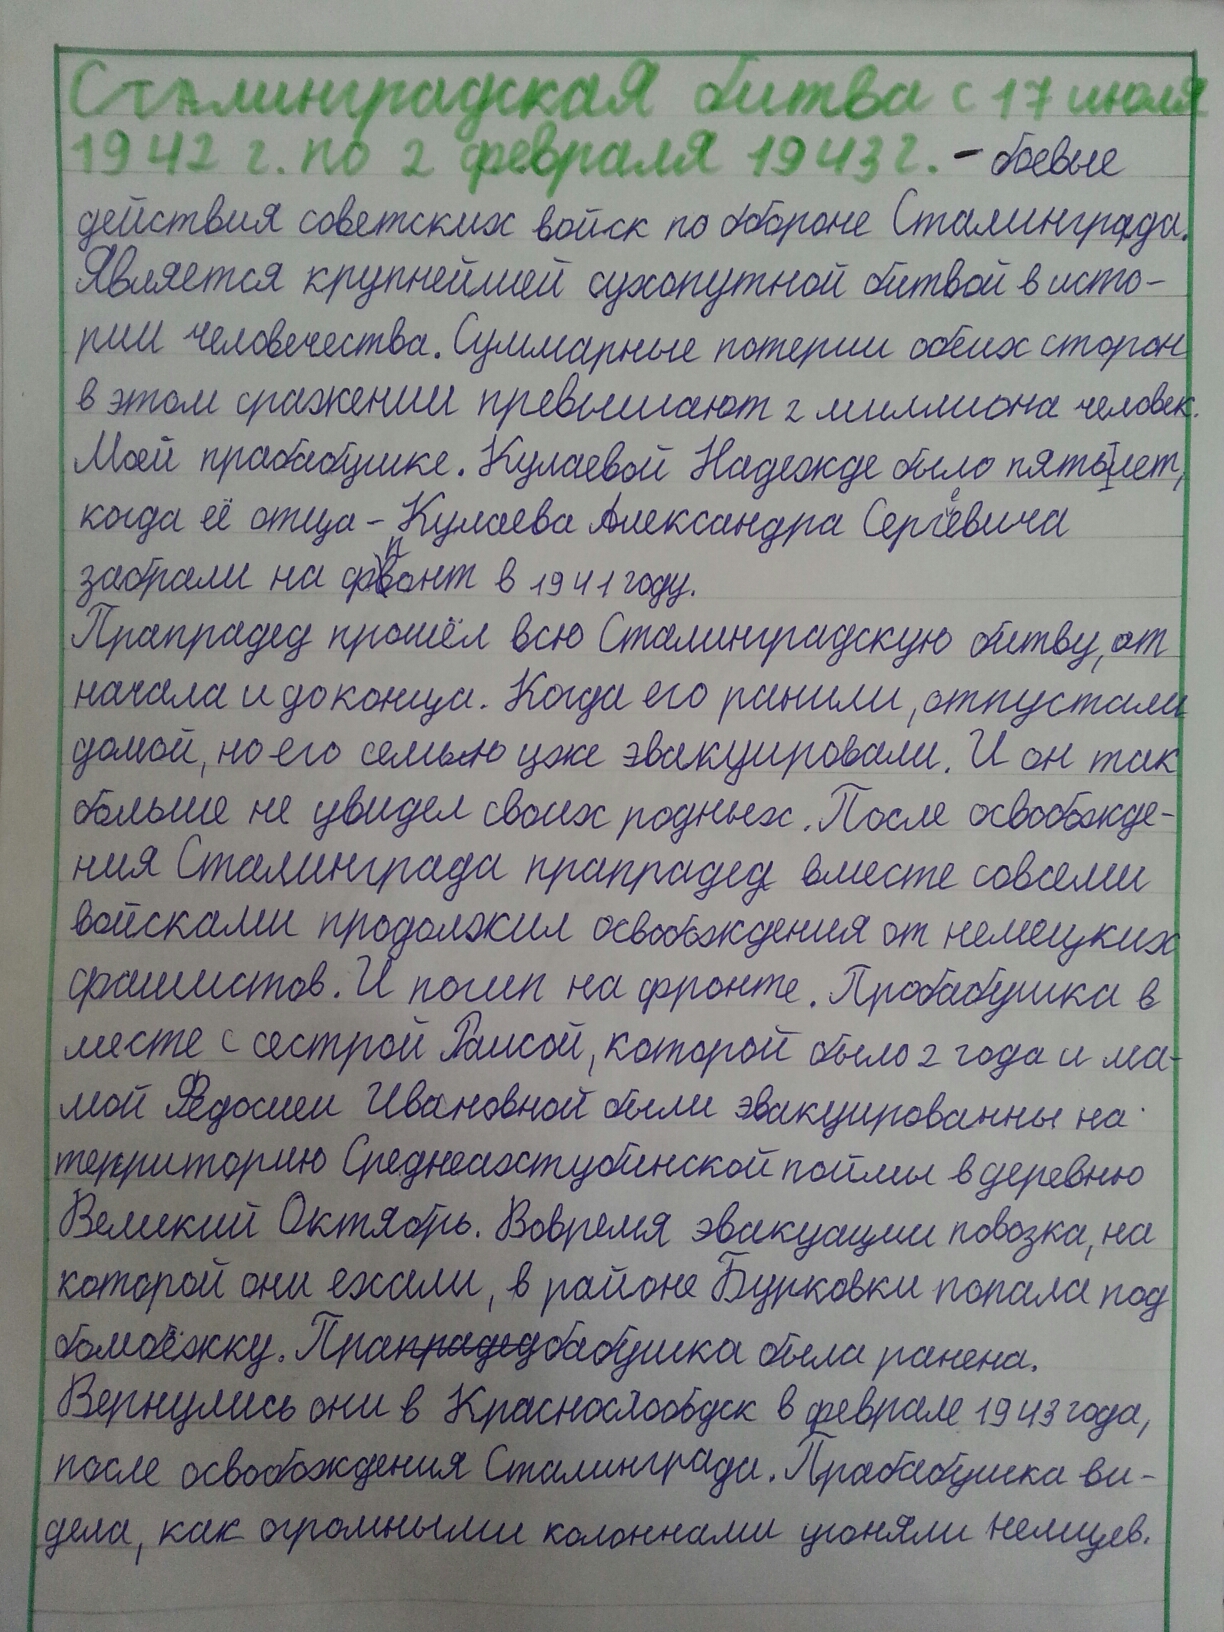 Сталинградская битва с 17 июля
1942 г. по 2 февраля 1943 г. - боевые
действия советских войск по обороне Сталинграда.
Является крупнейшей сухопутной битвой в исто-
рии человечества. Суммарные потери обеих сторон
в этом сражении превышают 2 миллиона человек.
Моей прабабушке. Кулаевой Надежде было пять лет,
когда её отца - Кулаева Александра Сергеевича
забрали на фронт в 1941 году.
Прапрадед прошёл всю Сталинградскую битву, от
начала и до конца. Когда его ранили, отпустили
домой, но его семью уже эвакуировали. И он так
больше не увидел своих родных. После освобожде-
ния Сталинграда прапрадед вместе совсеми
войсками продолжил освобождения от немецких
фашистов. И погип на фронте. Пробабушка в
месте с сестрой Раисой, которой было 2 года и ма-
мой Федосией Ивановной были эвакуированны на
территорию Среднеахтубинской поймы в деревню
Великий Октябрь. Вовремя эвакуации повозка, на
которой они ехали, в районе Бурковки попала под
бомбёжку. Прапрадедбабушка была ранена.
Вернулись они в Краснослободск в феврале 1943 года,
после освобождения Сталинграда. Прабабушка ви-
дела, как огромными колоннами угоняли немцев.